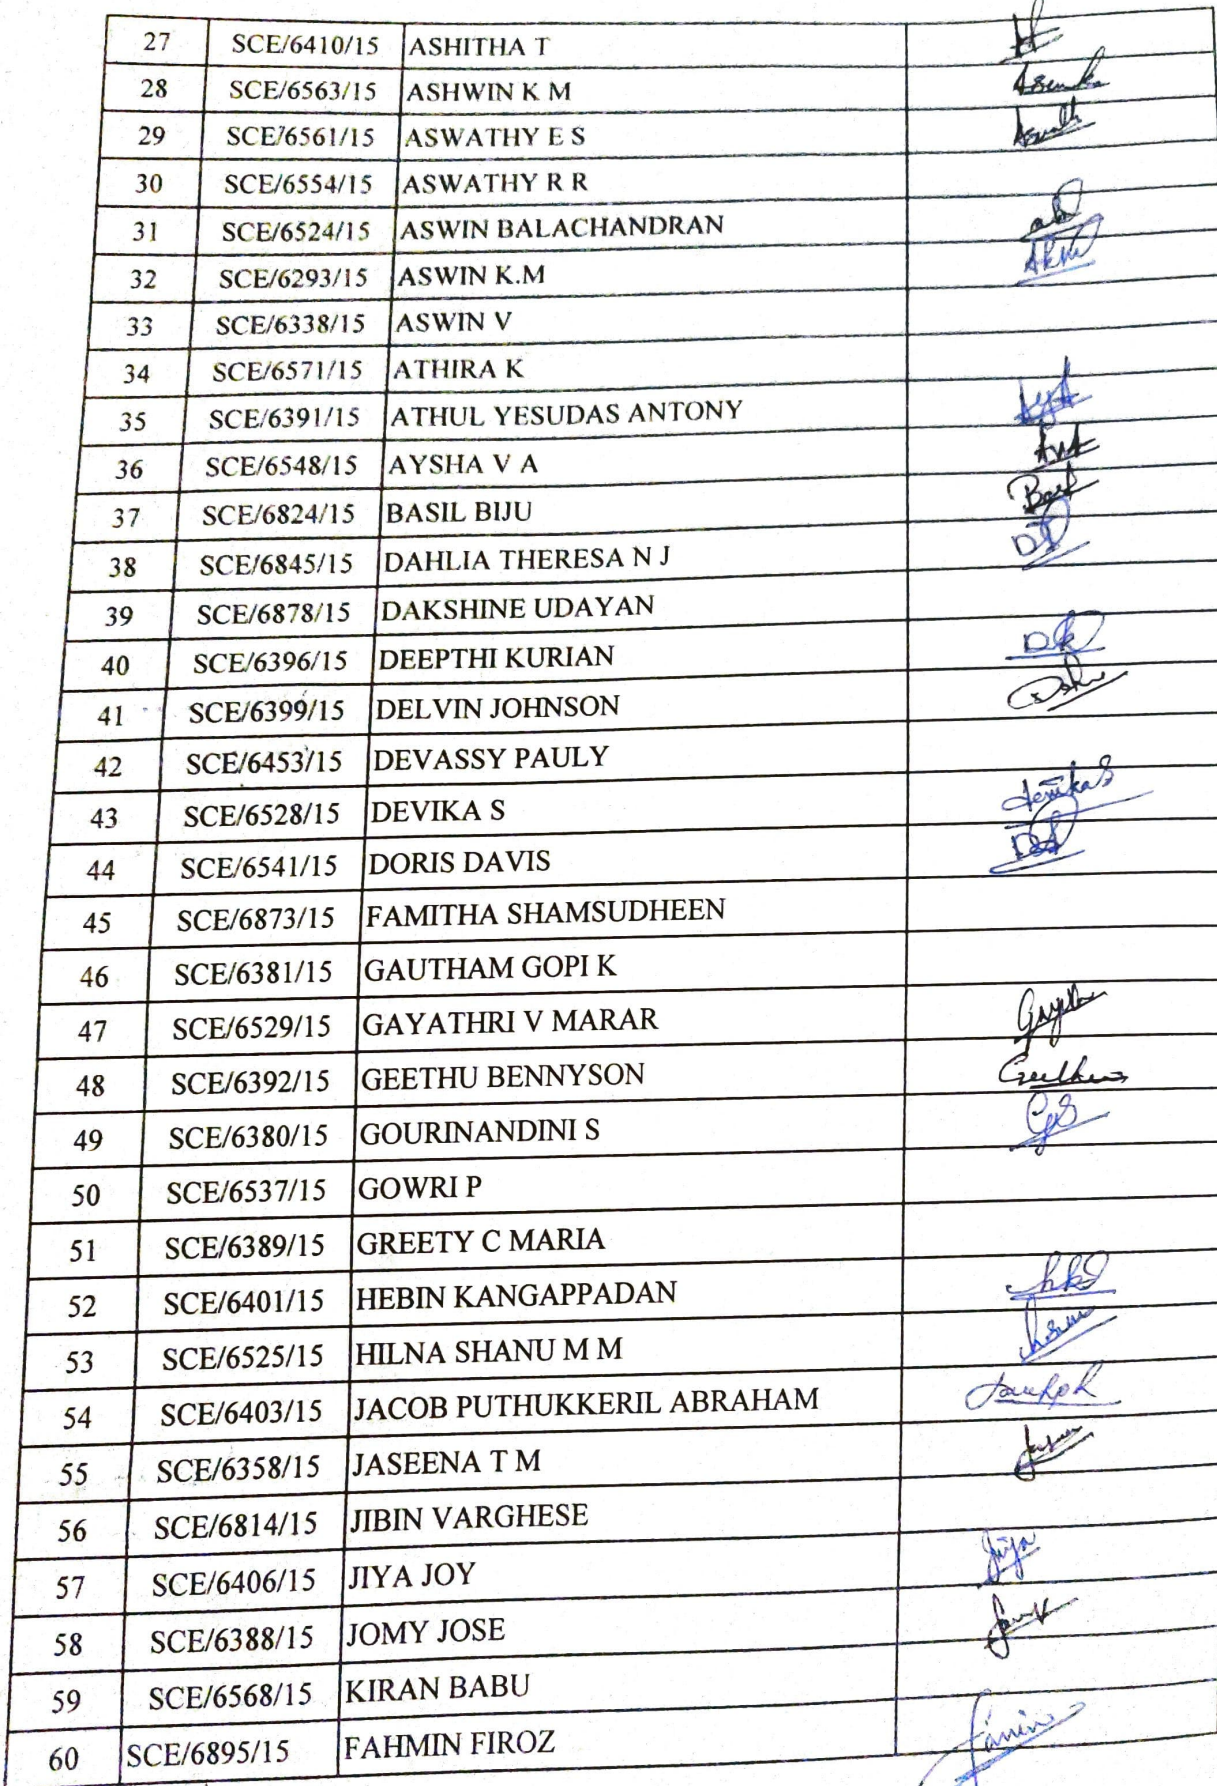 27 SCE/6410/15 ASHITHA T
28 SCE/6563/15 ASHWIN K M
29 SCE/6561/15 ASWATHY E S
30 SCE/6554/15 ASWATHY R R
31 SCE/6524/15 ASWIN BALACHANDRAN
32 SCE/6293/15 ASWIN K.M AKM
33 SCE/6338/15 ASWIN V
34 SCE/6571/15 ATHIRA K
35 SCE/6391/15 ATHUL YESUDAS ANTONY
36 SCE/6548/15 AYSHA V A
37 SCE/6824/15 BASIL BIJU
38 SCE/6845/15 DAHLIA THERESA N J
39 SCE/6878/15 DAKSHINE UDAYAN
40 SCE/6396/15 DEEPTHI KURIAN DK
41 SCE/6399/15 DELVIN JOHNSON
42 SCE/6453/15 DEVASSY PAULY
43 SCE/6528/15 DEVIKA S Devika S
44 SCE/6541/15 DORIS DAVIS
45 SCE/6873/15 FAMITHA SHAMSUDHEEN
46 SCE/6381/15 GAUTHAM GOPI K
47 SCE/6529/15 GAYATHRI V MARAR
48 SCE/6392/15 GEETHU BENNYSON
49 SCE/6380/15 GOURINANDINI S GS
50 SCE/6537/15 GOWRI P
51 SCE/6389/15 GREETY C MARIA
52 SCE/6401/15 HEBIN KANGAPPADAN
53 SCE/6525/15 HILNA SHANU M M
54 SCE/6403/15 JACOB PUTHUKKERIL ABRAHAM
55 SCE/6358/15 JASEENA T M
56 SCE/6814/15 JIBIN VARGHESE
57 SCE/6406/15 JIYA JOY Jiya
58 SCE/6388/15 JOMY JOSE
59 SCE/6568/15 KIRAN BABU
60 SCE/6895/15 FAHMIN FIROZ